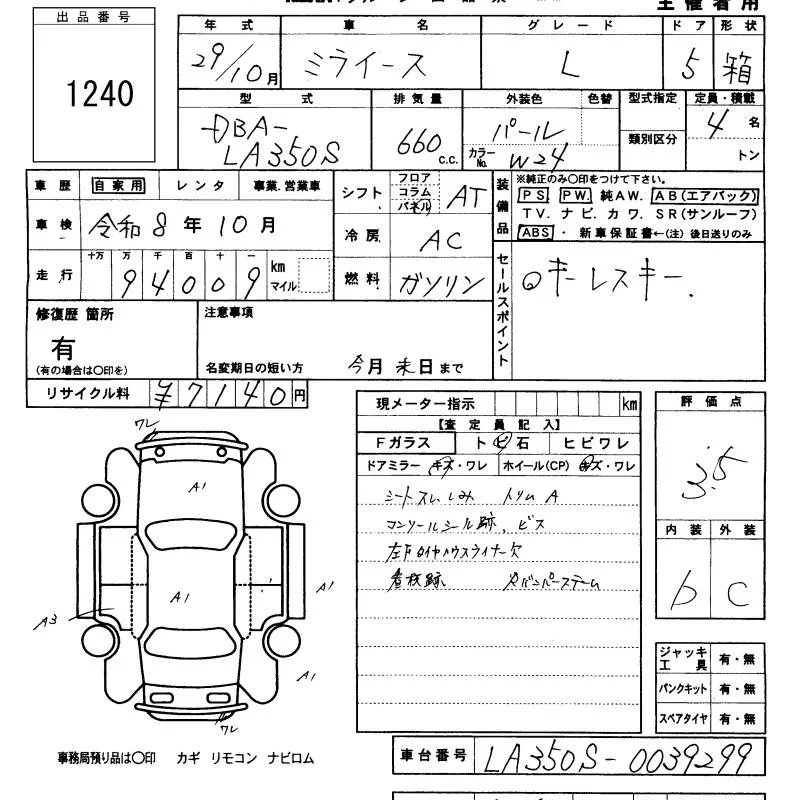 主催者用
出品番号
1240
年式 車名 グレード ドア 形状
29/10月 ミライース L 5 箱
型式 排気量 外装色 色替 型式指定 定員・積載
DBA-LA350S 660c.c. パール カラーNo. W24 類別区分 4名 トン
車歴 自家用 レンタ 事業.営業車
車検 令和8年10月
十万 万 千 百 十 一
走行 94009 km マイル
シフト フロア コラム パネル AT
冷房 AC
燃料 ガソリン
装備品 ※純正のみ〇印をつけて下さい。
PS PW 純AW. AB(エアバック)
TV. ナビ. カワ. SR(サンルーフ)
ABS ・ 新車保証書←(注) 後日送りのみ
セールスポイント
キーレスキー.
修復歴 箇所
有
(有の場合は〇印を)
注意事項
名変期日の短い方 今月末日まで
リサイクル料 ¥7140円
現メーター指示 km
【査定員記入】
Fガラス トビ石 ヒビワレ
ドアミラー キズ・ワレ ホイール(CP) キズ・ワレ
シートスレ,しみ トリムA
コンソールシール跡、ビス
左F タイヤハウスライナー欠
看板跡
評価点
3.5
内装 外装
b C
ジャッキ工具 有・無
パンクキット 有・無
スペアタイヤ 有・無
ワレ
A1
A1
A1
A3
A1
ワレ
事務局預り品は〇印 カギ リモコン ナビロム
車台番号 LA350S-0039299